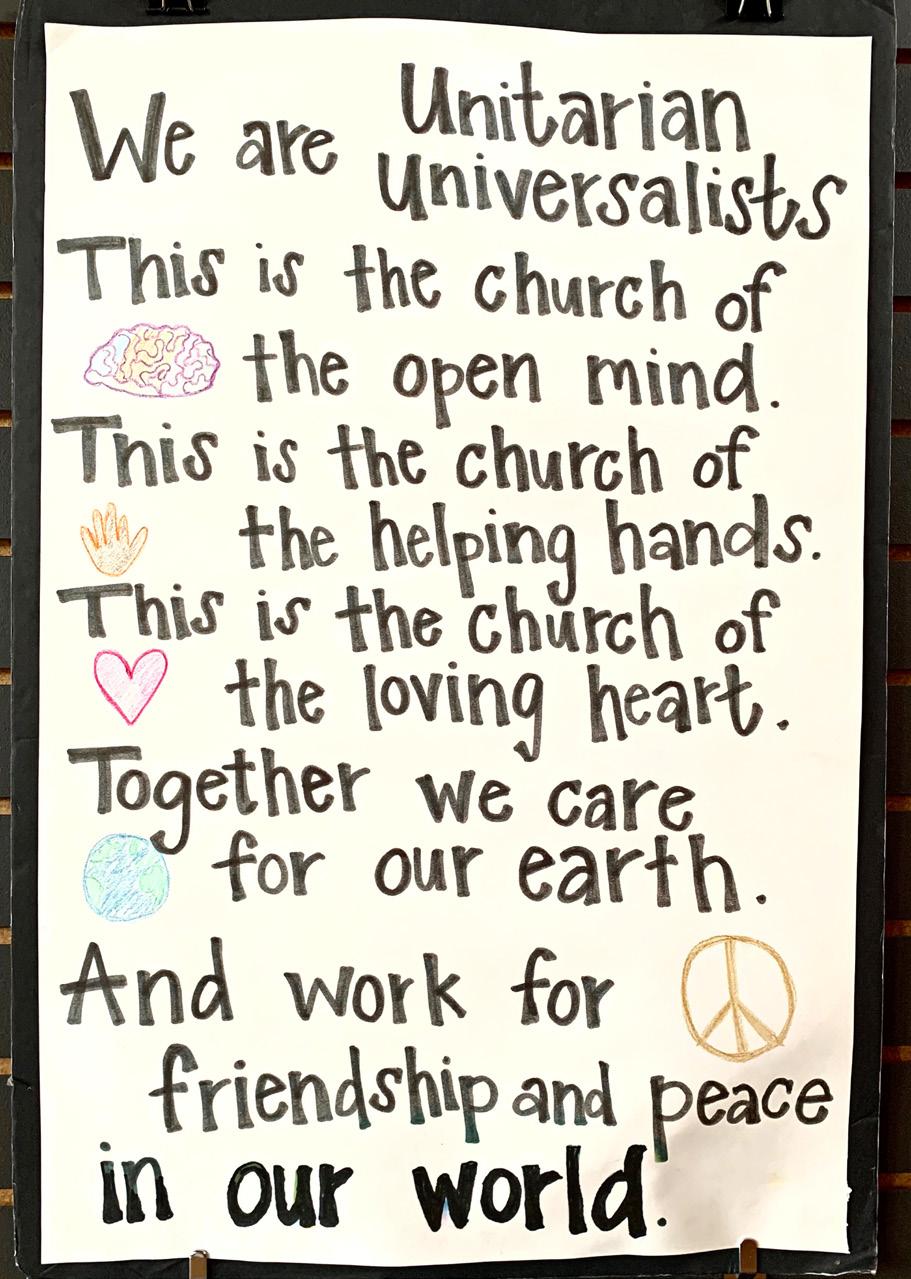 We are Unitarian
Universalists
This is the church of
the open mind.
This is the church of
the helping hands.
This is the church of
the loving heart.
Together we care
for our earth.
And work for
friendship and peace
in our world.